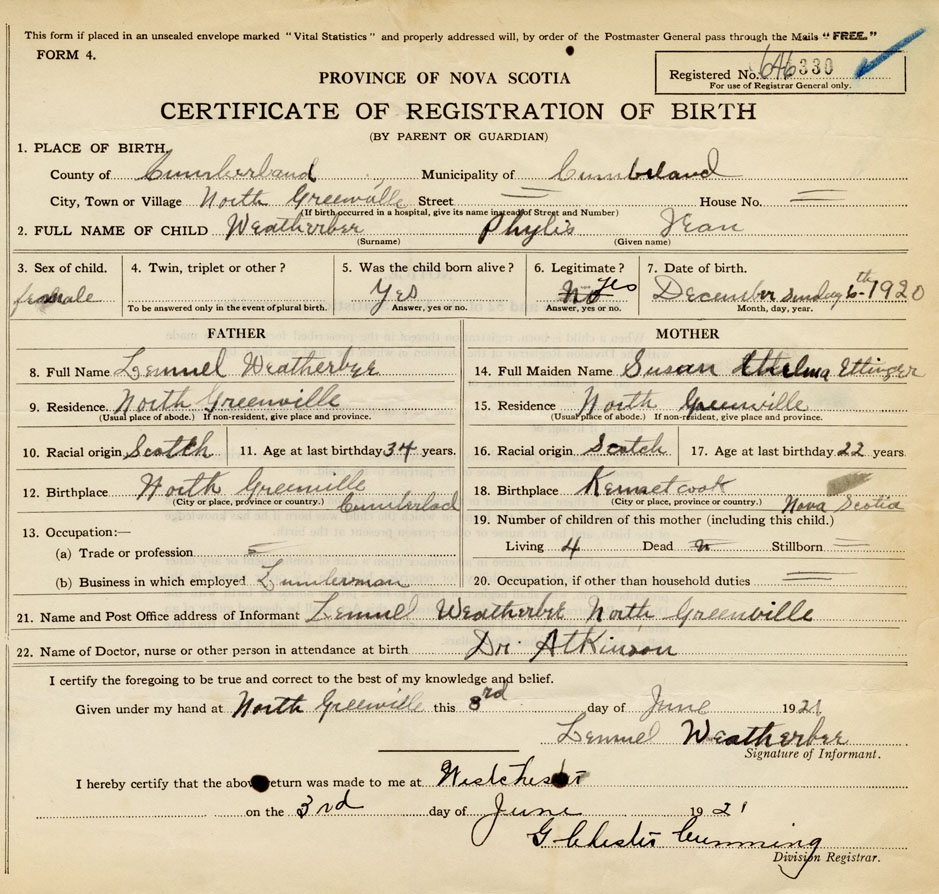 This form if placed in an unsealed envelope marked "Vital Statistics" and properly addressed will, by order of the Postmaster General pass through the Mails "FREE."
FORM 4.
Registered No. 646330
For use of Registrar General only.
PROVINCE OF NOVA SCOTIA
CERTIFICATE OF REGISTRATION OF BIRTH
(BY PARENT OR GUARDIAN)
1. PLACE OF BIRTH,
County of Cumberland Municipality of Cumbeland
City, Town or Village North Greenville Street House No.
(If birth occurred in a hospital, give its name instead of Street and Number)
2. FULL NAME OF CHILD Weatherber Phylis Jean
(Surname) (Given name)
3. Sex of child. 4. Twin, triplet or other? 5. Was the child born alive? 6. Legitimate? 7. Date of birth.
female Yes No yes December Sunday 6th 1920
To be answered only in the event of plural birth. Answer, yes or no. Answer, yes or no. Month, day, year.
FATHER MOTHER
8. Full Name Lemuel Weatherbee 14. Full Maiden Name Susan Ethelma Ettinger
9. Residence. North Greenville 15. Residence North Greenville
(Usual place of abode.) If non-resident, give place and province. (Usual place of abode.) If non-resident, give place and province.
10. Racial origin Scotch 11. Age at last birthday 34 years. 16. Racial origin Scotch 17. Age at last birthday 22 years.
12. Birthplace North Greenville Cumberlad 18. Birthplace Kennetcook Nova Scotia
(City or place, province or country.) (City or place, province or country.)
13. Occupation:— 19. Number of children of this mother (including this child.)
(a) Trade or profession Living 4 Dead Stillborn
(b) Business in which employed Lumberman 20. Occupation, if other than household duties
21. Name and Post Office address of Informant Lemuel Weatherber North Greenville
22. Name of Doctor, nurse or other person in attendance at birth Dr. Atkinson
I certify the foregoing to be true and correct to the best of my knowledge and belief.
Given under my hand at North Greenville this 3rd day of June 1921
Lemuel Weatherber
Signature of Informant.
I hereby certify that the above return was made to me at Westchester
on the 3rd day of June 1921
G Chester Cumming
Division Registrar.